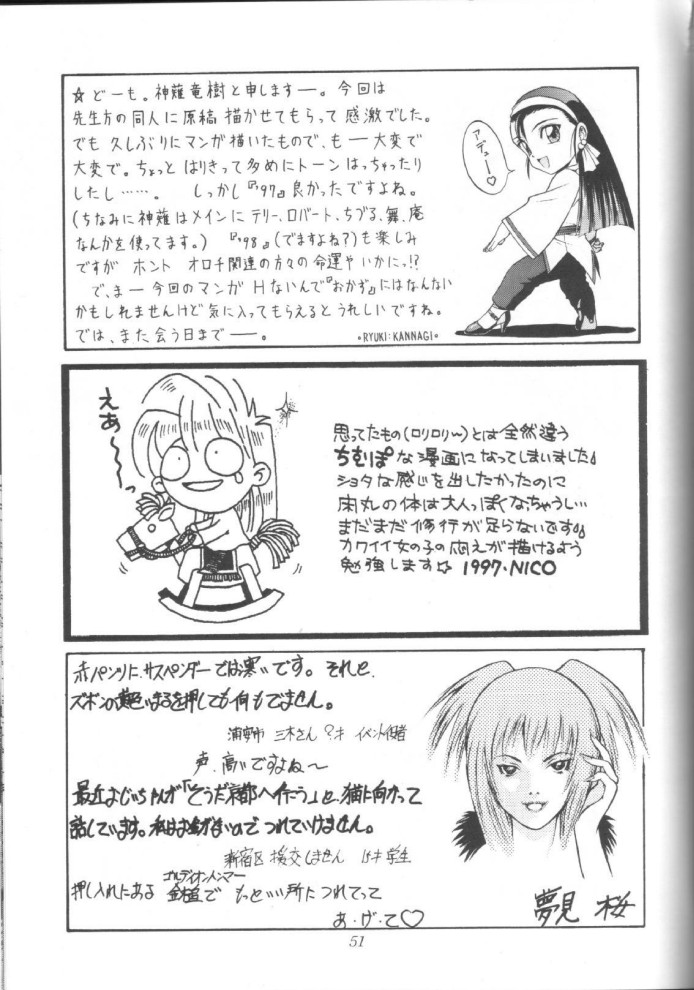 ☆どーも。神薙竜樹と申しますー。今回は
先生方の同人に原稿描かせてもらって感激でした。
でも久しぶりにマンガ描いたもので、もー大変で
大変で。ちょっとはりきって多めにトーンはっちゃったり
したし……。しっかし『'97』良かったですよね。
(ちなみに神薙はメインにテリー、ロバート、ちづる、舞、庵
なんかを使ってます。)『'98』(でますよね?)も楽しみ
ですがホントオロチ関連の方々の命運やいかにっ!?
で、まー今回のマンガHないんで『おかず』にはなんない
かもしれませんけど気に入ってもらえるとうれしいですね。
では、また会う日までー。
・RYUKI:KANNAGI・
アデュー♡
えあ〜〜っ
思ってたもの(ロリロリ〜)とは全然違う
ちむぽな漫画になってしまいました♪
ショタな感じを出したかったのに
体は大人っぽくなっちゃうし…
まだまだ修行が足らないです♪
カワイイ女の子の悶えが描けるよう
勉強します☆ 1997・NICO
赤パンツに、サスペンダーでは寒いです。それと、
ズボンの まるを押しても何もでません。
浦安市 三木さん ?才 イベント
声、高いですよね〜
最近よじいちゃんが「そうだ京都へ行こう」と、猫に向かって
話しています。私はお金がないのでつれていけません。
新宿区 援交しません 学生
ゴルディオンハンマー
押し入れにある 金槌で もっといい所につれてって
あ・げ・て♡
夢見 桜
51